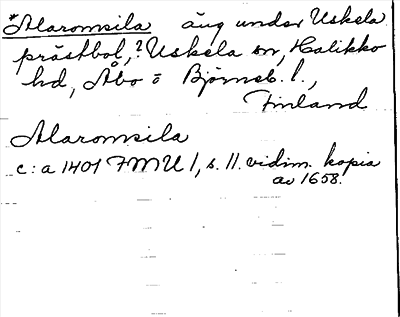 *Alaromsila äng under Uskela
prästbol,? Uskela sn, Halikko
hd, Åbo o Björneb. l.,
Finland
Alaromsila
c:a 1401 FMU 1, s. 11. vidim. kopia
av 1658.